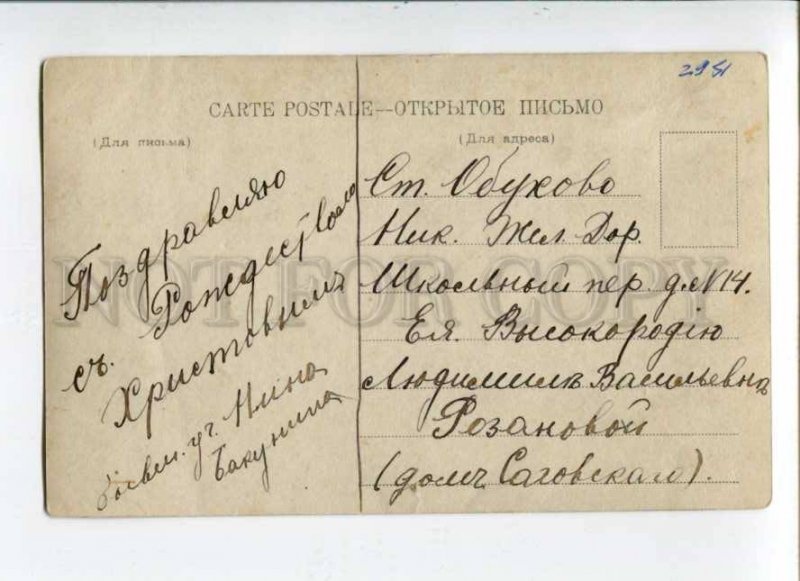 2951
CARTE POSTALE—ОТКРЫТОЕ ПИСЬМО
(Для письма)
(Для адреса)
Поздравляю
съ Рождествомъ
Христовымъ
уч. Нина
Бакунина
Ст. Обухово
Ник. Жел. Дор.
Школьный пер. д. №14.
Ея Высокородію
Людмилѣ Васильевнѣ
Розановой
(домъ Саговскаго).
NOT FOR COPY